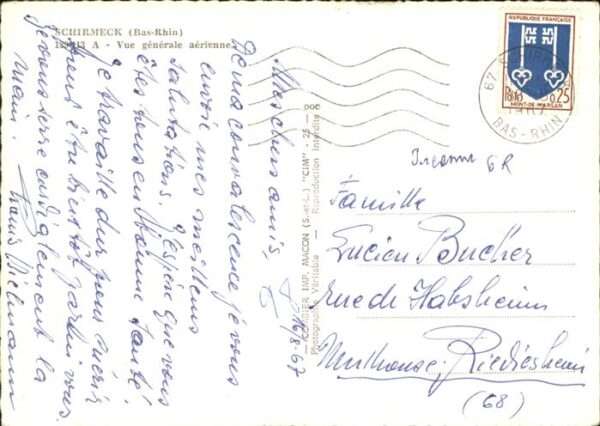 SCHIRMECK (Bas-Rhin)
A - Vue générale aérienne
Mes chers amis,
De ma convalescence je vous
envoie mes meilleurs
salutations. J'espère que vous
êtes tous en bonne santé.
Je travaille dur pour guérir
pour être bientôt parmi vous.
Je vous serre cordialement la
main.
16/8-67
COMBIER IMP. MACON (S.-et-L.) "CIM" - 25 - DOC
Photographie Véritable - Reproduction Interdite
REPUBLIQUE FRANÇAISE
POSTES 0,25
MONT-DE-MARSAN
67
BAS-RHIN
6R
Famille
Lucien Bucher
rue de Habsheim
Mulhouse-Riedisheim
(68)